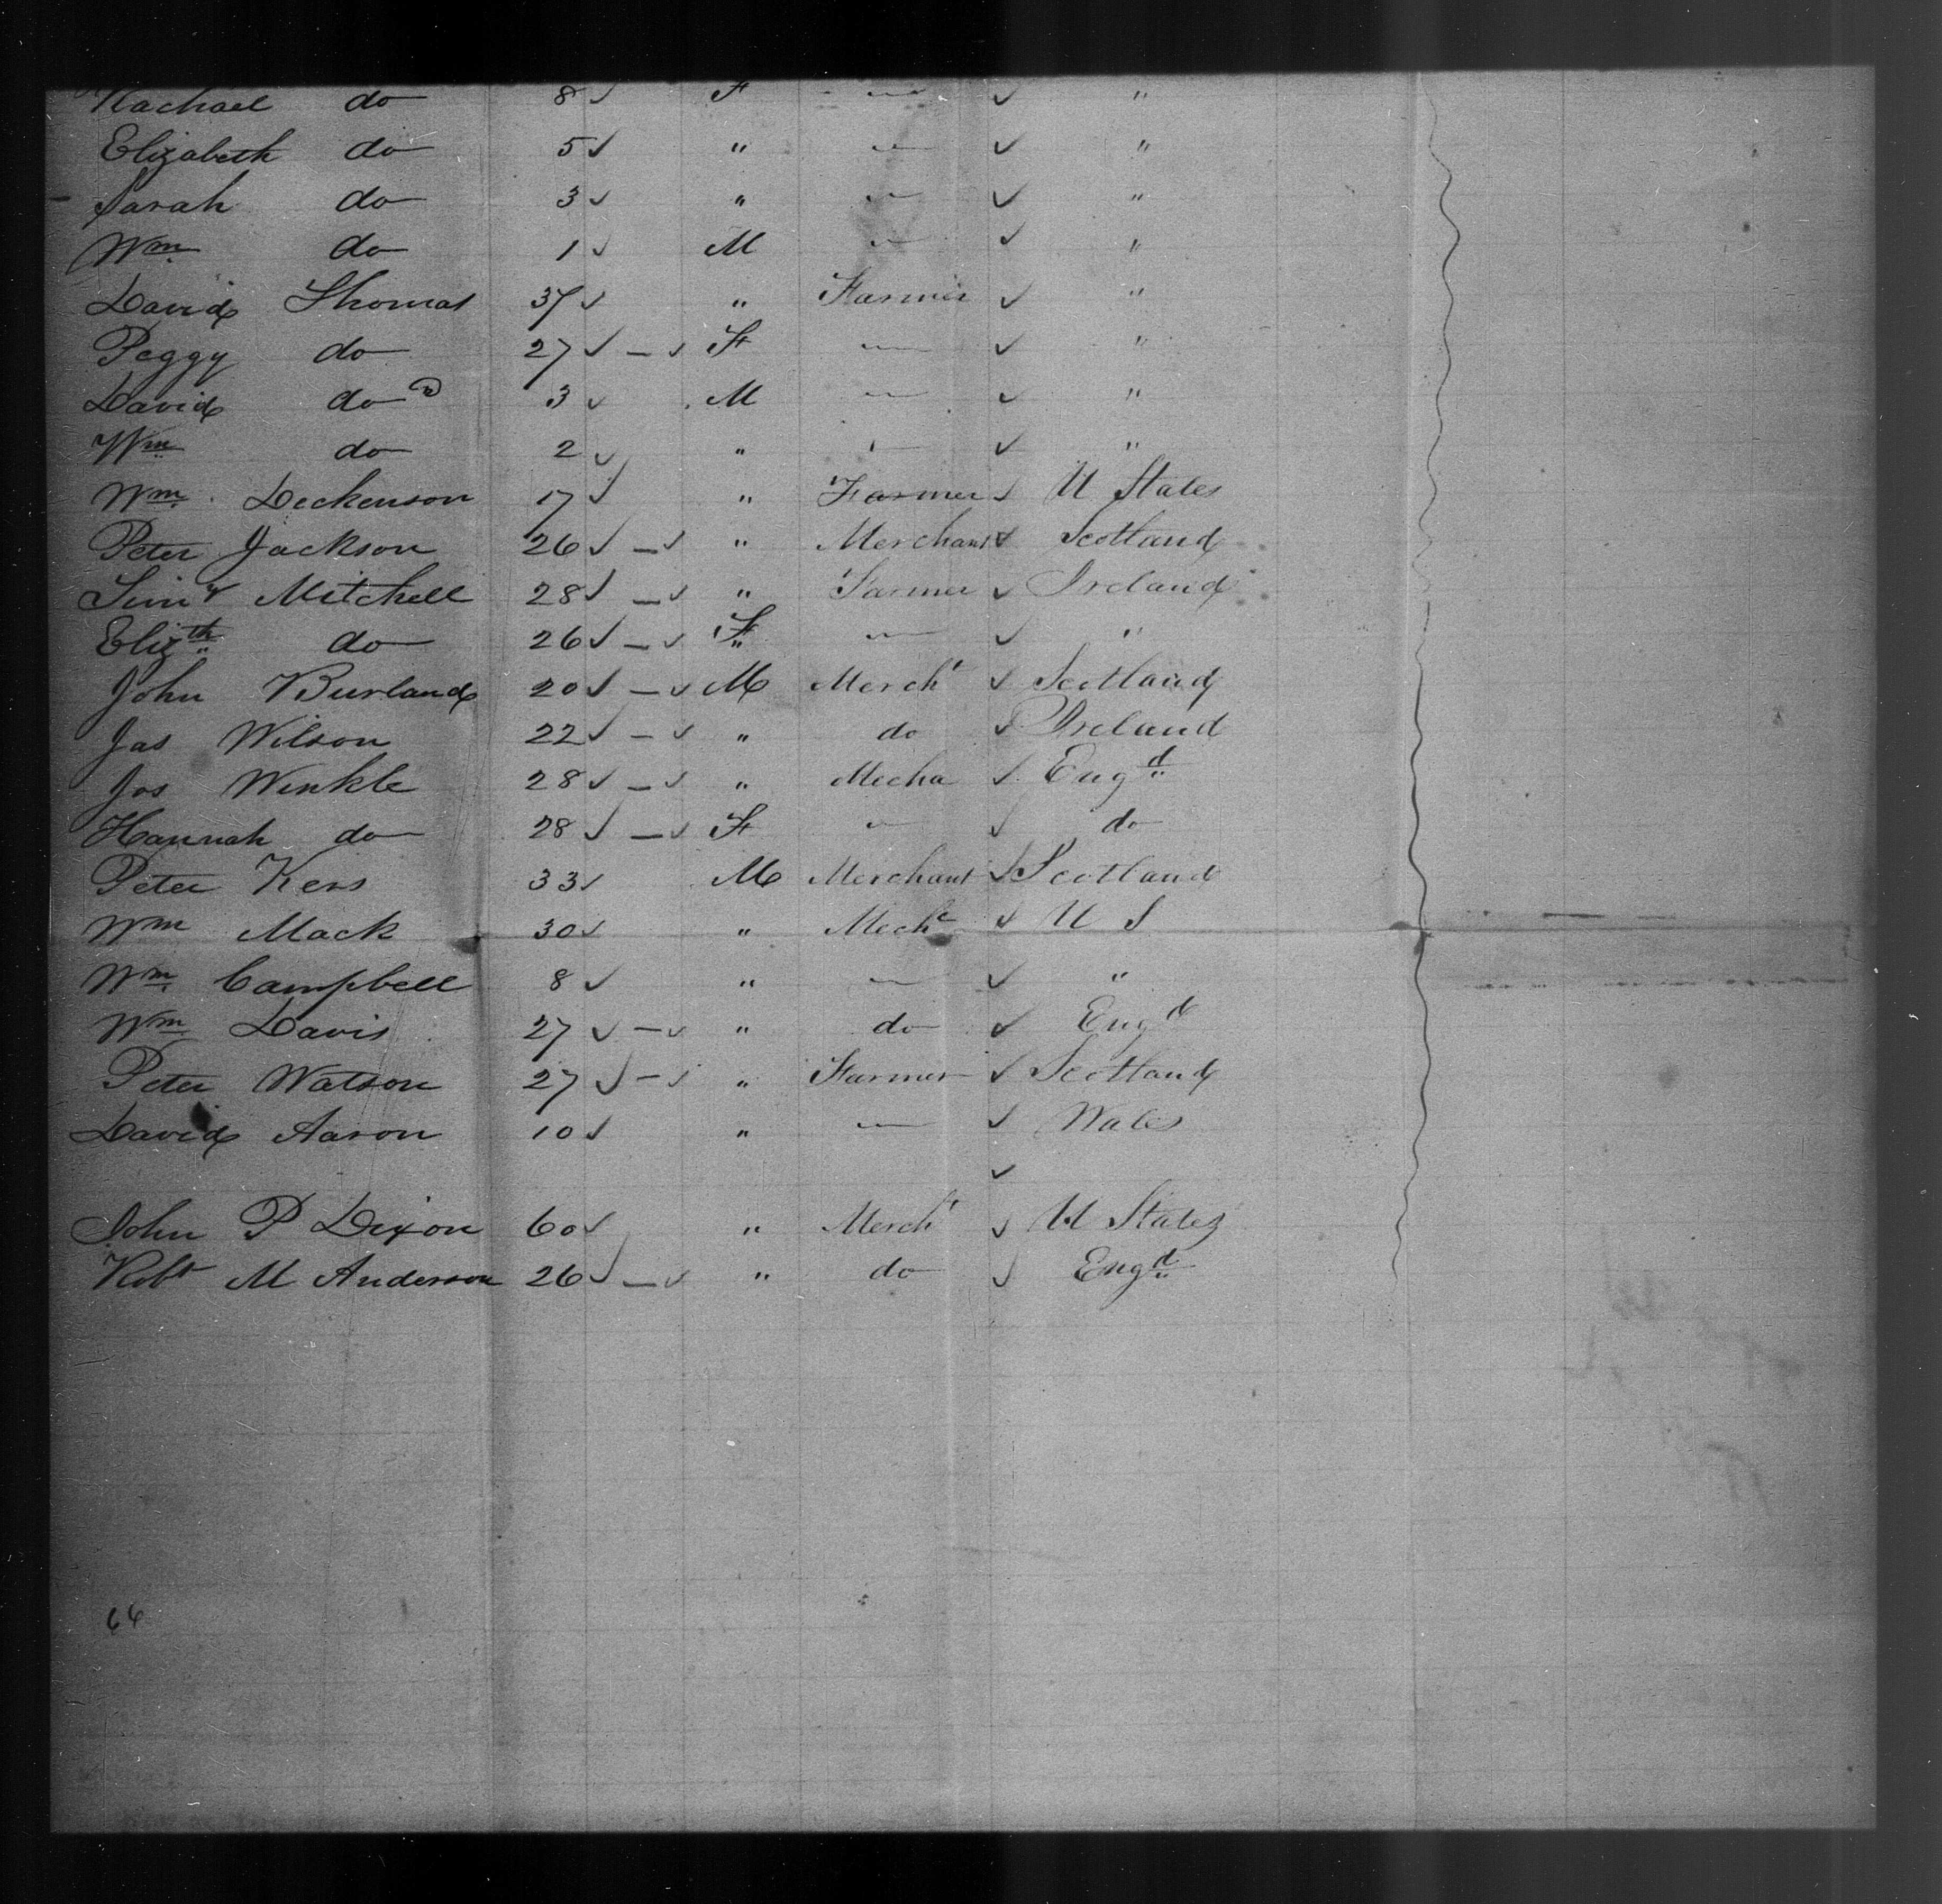 Rachael do 8 ✓ F — ✓ "
Elizabeth do 5 ✓ " — ✓ "
Sarah do 3 ✓ " — ✓ "
Wm do 1 ✓ M — ✓ "
David Thomas 37 ✓ " Farmer ✓ "
Peggy do 27 ✓ — ✓ F — ✓ "
David do 3 ✓ M — ✓ "
Wm do 2 ✓ " — ✓ "
Wm Deckenson 17 ✓ " Farmer ✓ U States
Peter Jackson 26 ✓ — ✓ " Merchant ✓ Scotland
Mitchell 28 ✓ — ✓ " Farmer ✓ Ireland
Elizth do 26 ✓ — ✓ F — ✓ "
John Burland 20 ✓ — ✓ M Mercht ✓ Scotland
Jas Wilson 22 ✓ — ✓ " do ✓ Ireland
Jos Winkle 28 ✓ — ✓ " Mecha ✓ Engd
Hannah do 28 ✓ — ✓ F — ✓ do
Peter Kers 33 ✓ M Merchant ✓ Scotland
Wm Mack 30 ✓ " Mechc ✓ U S
Wm Campbell 8 ✓ " — ✓ "
Wm Davis 27 ✓ — ✓ " do ✓ Engd
Peter Watson 27 ✓ — ✓ " Farmer ✓ Scotland
David Aaron 10 ✓ " — ✓ Wales
✓
John P Dixon 60 ✓ " Mercht ✓ U States
Robt M Anderson 26 ✓ — ✓ " do ✓ Engd
64